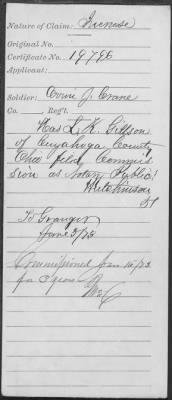 Nature of Claim: Increase
Original No.
Certificate No. 19796
Applicant:
Soldier: Orrin J. Crane
Co. Reg't.
Has L. K. Gibson
of Cuyahoga County
Ohio filed Commis
sion as Notary Public?
Hutchinson
To Granger
June 3/73
Commissioned Jan 16/73
for 3 years